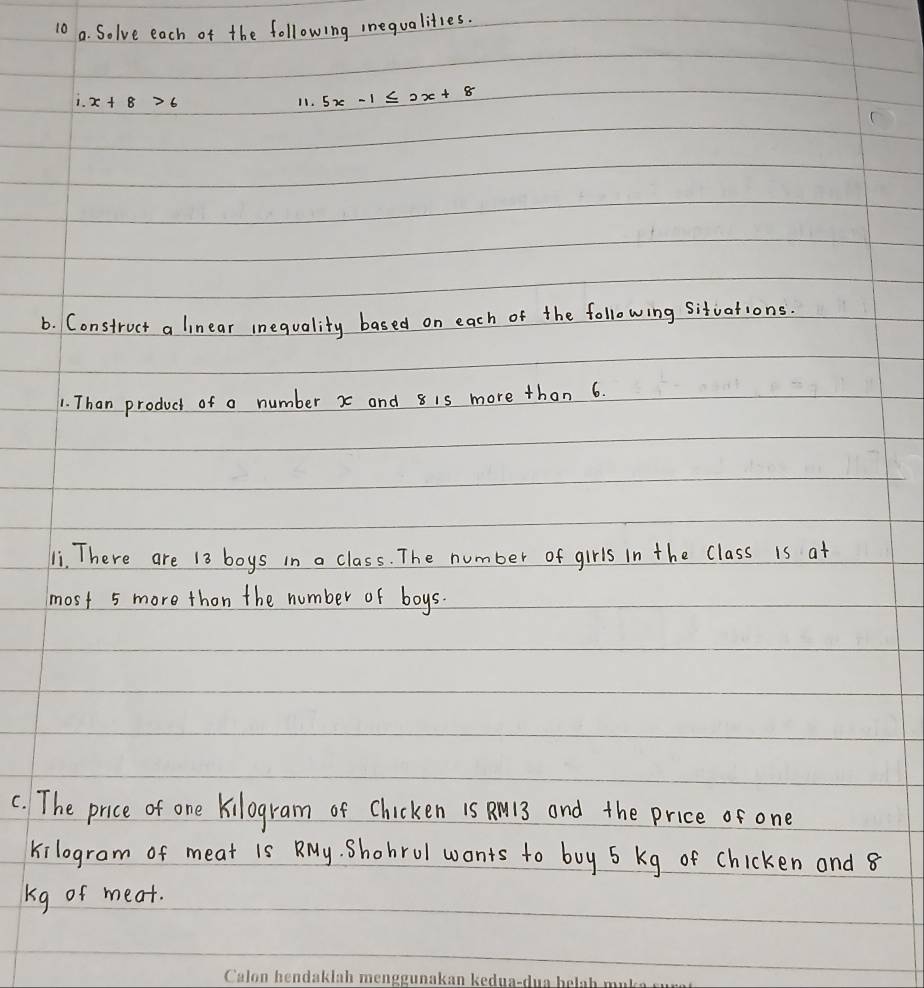 10 a. Solve each of the following inequalities.
i. x + 8 > 6 11. 5x - 1 ≤ 2x + 8
b. Construct a linear inequality based on each of the following situations.
1. Than product of a number x and 8 is more than 6.
ii. There are 13 boys in a class. The number of girls in the class is at
most 5 more than the number of boys.
c. The price of one kilogram of chicken is RM13 and the price of one
kilogram of meat is RMy. Shahrul wants to buy 5 kg of chicken and 8
kg of meat.
Calon hendaklah menggunakan kedua-dua belah